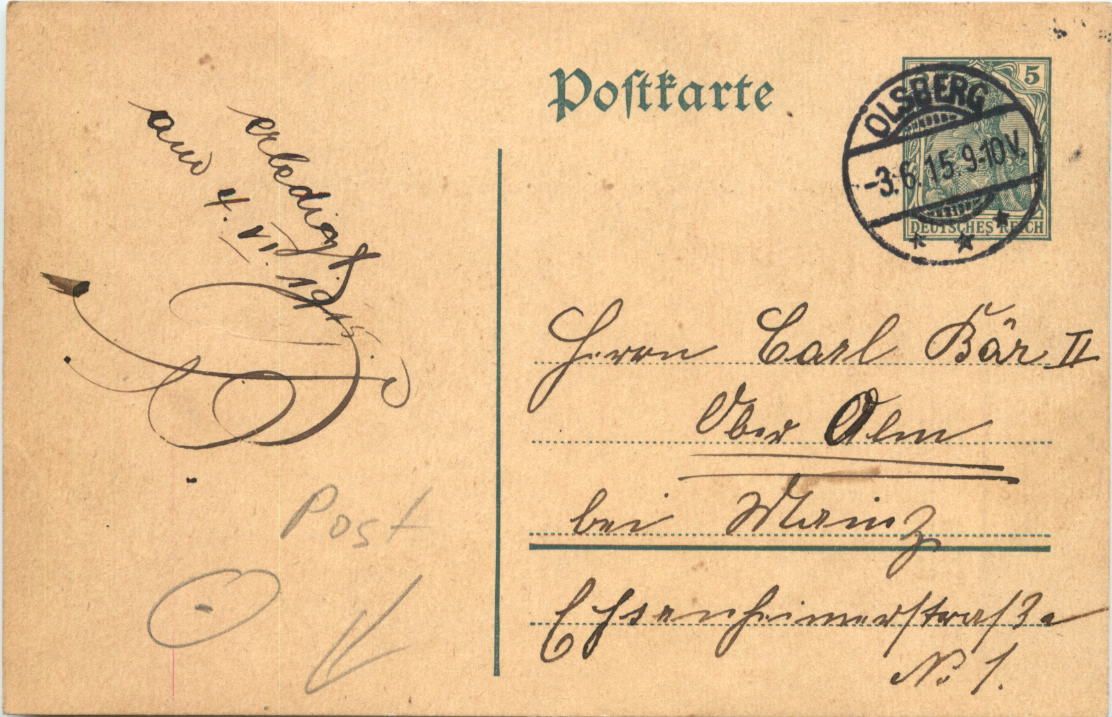 Postkarte
5
DEUTSCHES REICH
OLSBERG
-3.6.15.9-10V.
erledigt
am 4. VI. 1915.
Herrn Carl Bär II
Ober Olm
bei Mainz
Essenheimerstraße
No 1.
Post